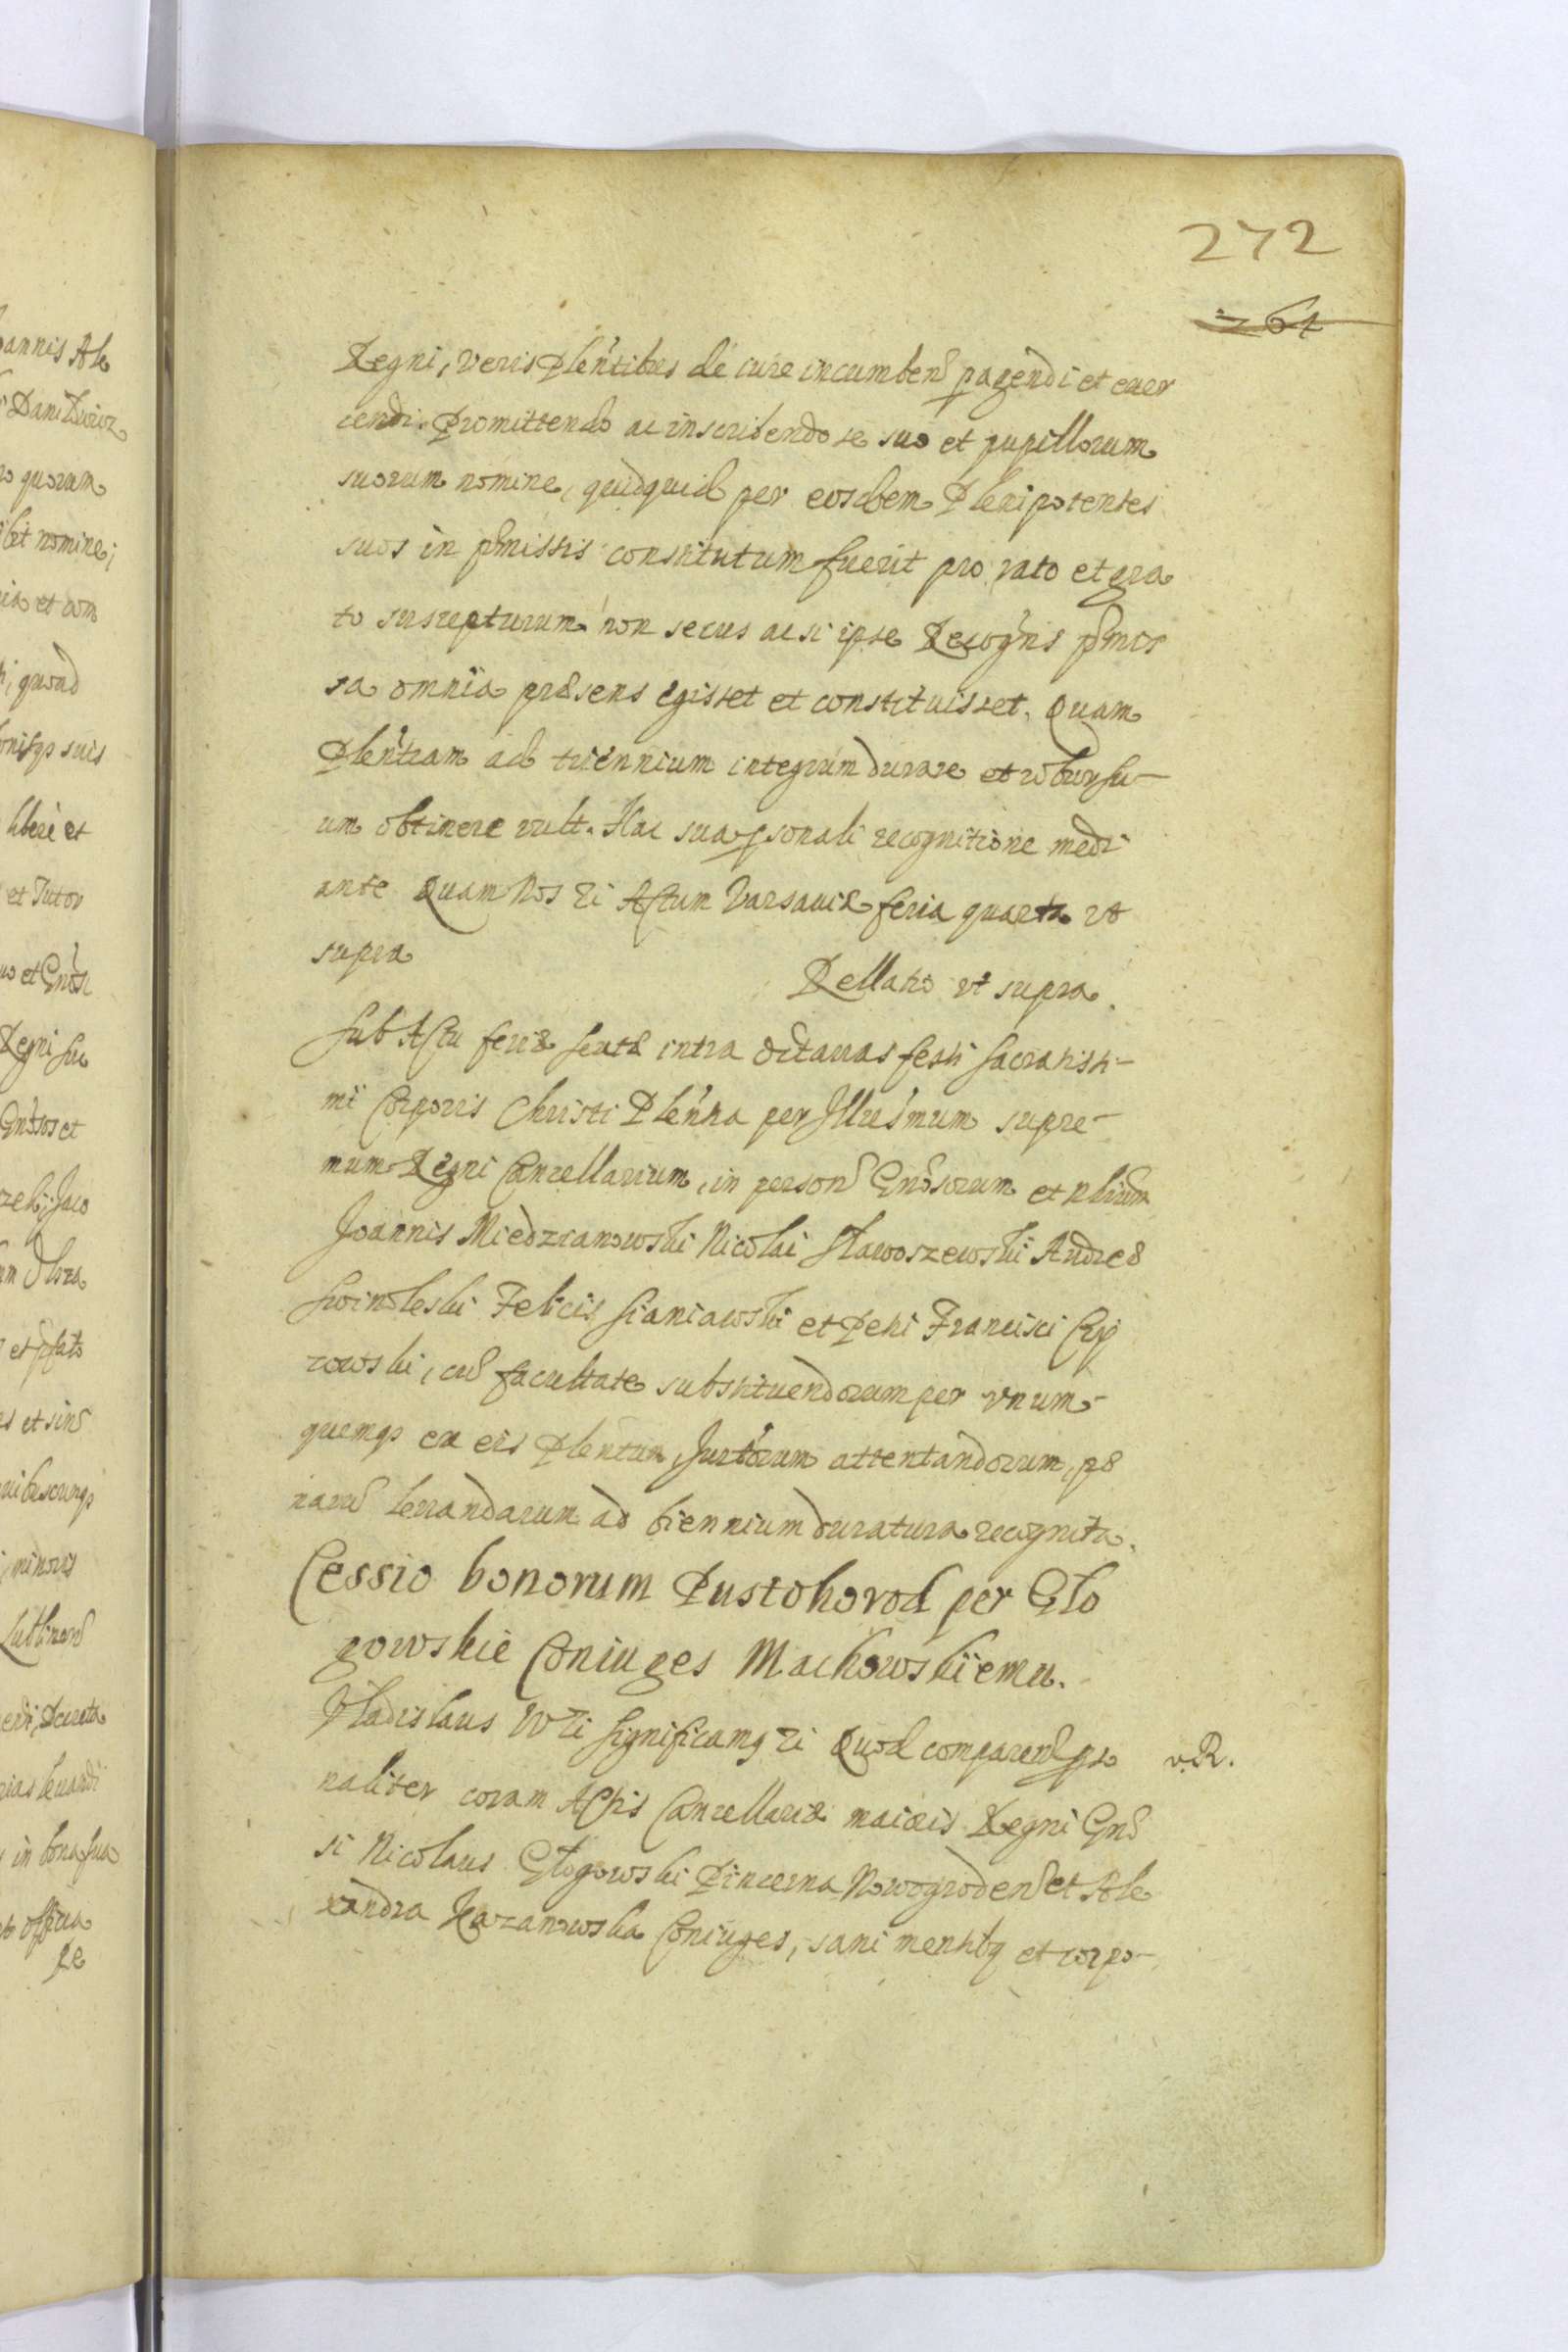 272
264
Regni, veris Plentibus de iure incumben peragendi et exer
cendi. Promittendo ac inscribendo se suo et pupillorum
suorum nomine, quidquid per eosdem Plenipotentes
suos in pmissis constitutum fuerit pro rato et gra
to suscepturum non secus ac si ipse Recogns pmis
sa omnia præsens egisset et constituisset. Quam
Plentiam ad triennium integrum durare et robur su-
um obtinere vult. Hac sua psonali recognitione medi
ante Quam Nos Zi Actum Varsaviæ feria quarta vt
supra
Rellatio vt supra.
Sub Actu feriæ sextæ intra octavas festi sacratissi-
mi Corporis Christi Plentia per Illusmum supre-
mum Regni Cancellarium, in person Gnosorum et Nblium
Joannis Miedzianowski Nicolai Sławoszewski Andreæ
Swinoleski Felicis Sianiawski et Petri Francisci Czy
zowski, cū facultate substituendorum per vnum-
quemqz ex eis Plentum, Jurtorum attentandorum, pæ
narū levandarum ad biennium duratura recognita.
Cessio bonorum Pustohorod per Glo
gowskie Coniuges Machowskiemu.
Vladislaus IV Zi Significamq Zi Quod comparen pso
v. R.
naliter coram Actis Cancellariæ maioris Regni Gno
si Nicolaus Głogowski Pincerna Nowogroden et Ale
xandra Kazanowska Coniuges, sani mentibq et corpo-
oannis Ale
quoram
nomine;
et com
quoad
suis
libere et
et Tutor
et Gnosi
Regni su
Gnosos et
Jaco
et pfato
et sin
minoris
Lublinen
Decreta
in bona sua
officia